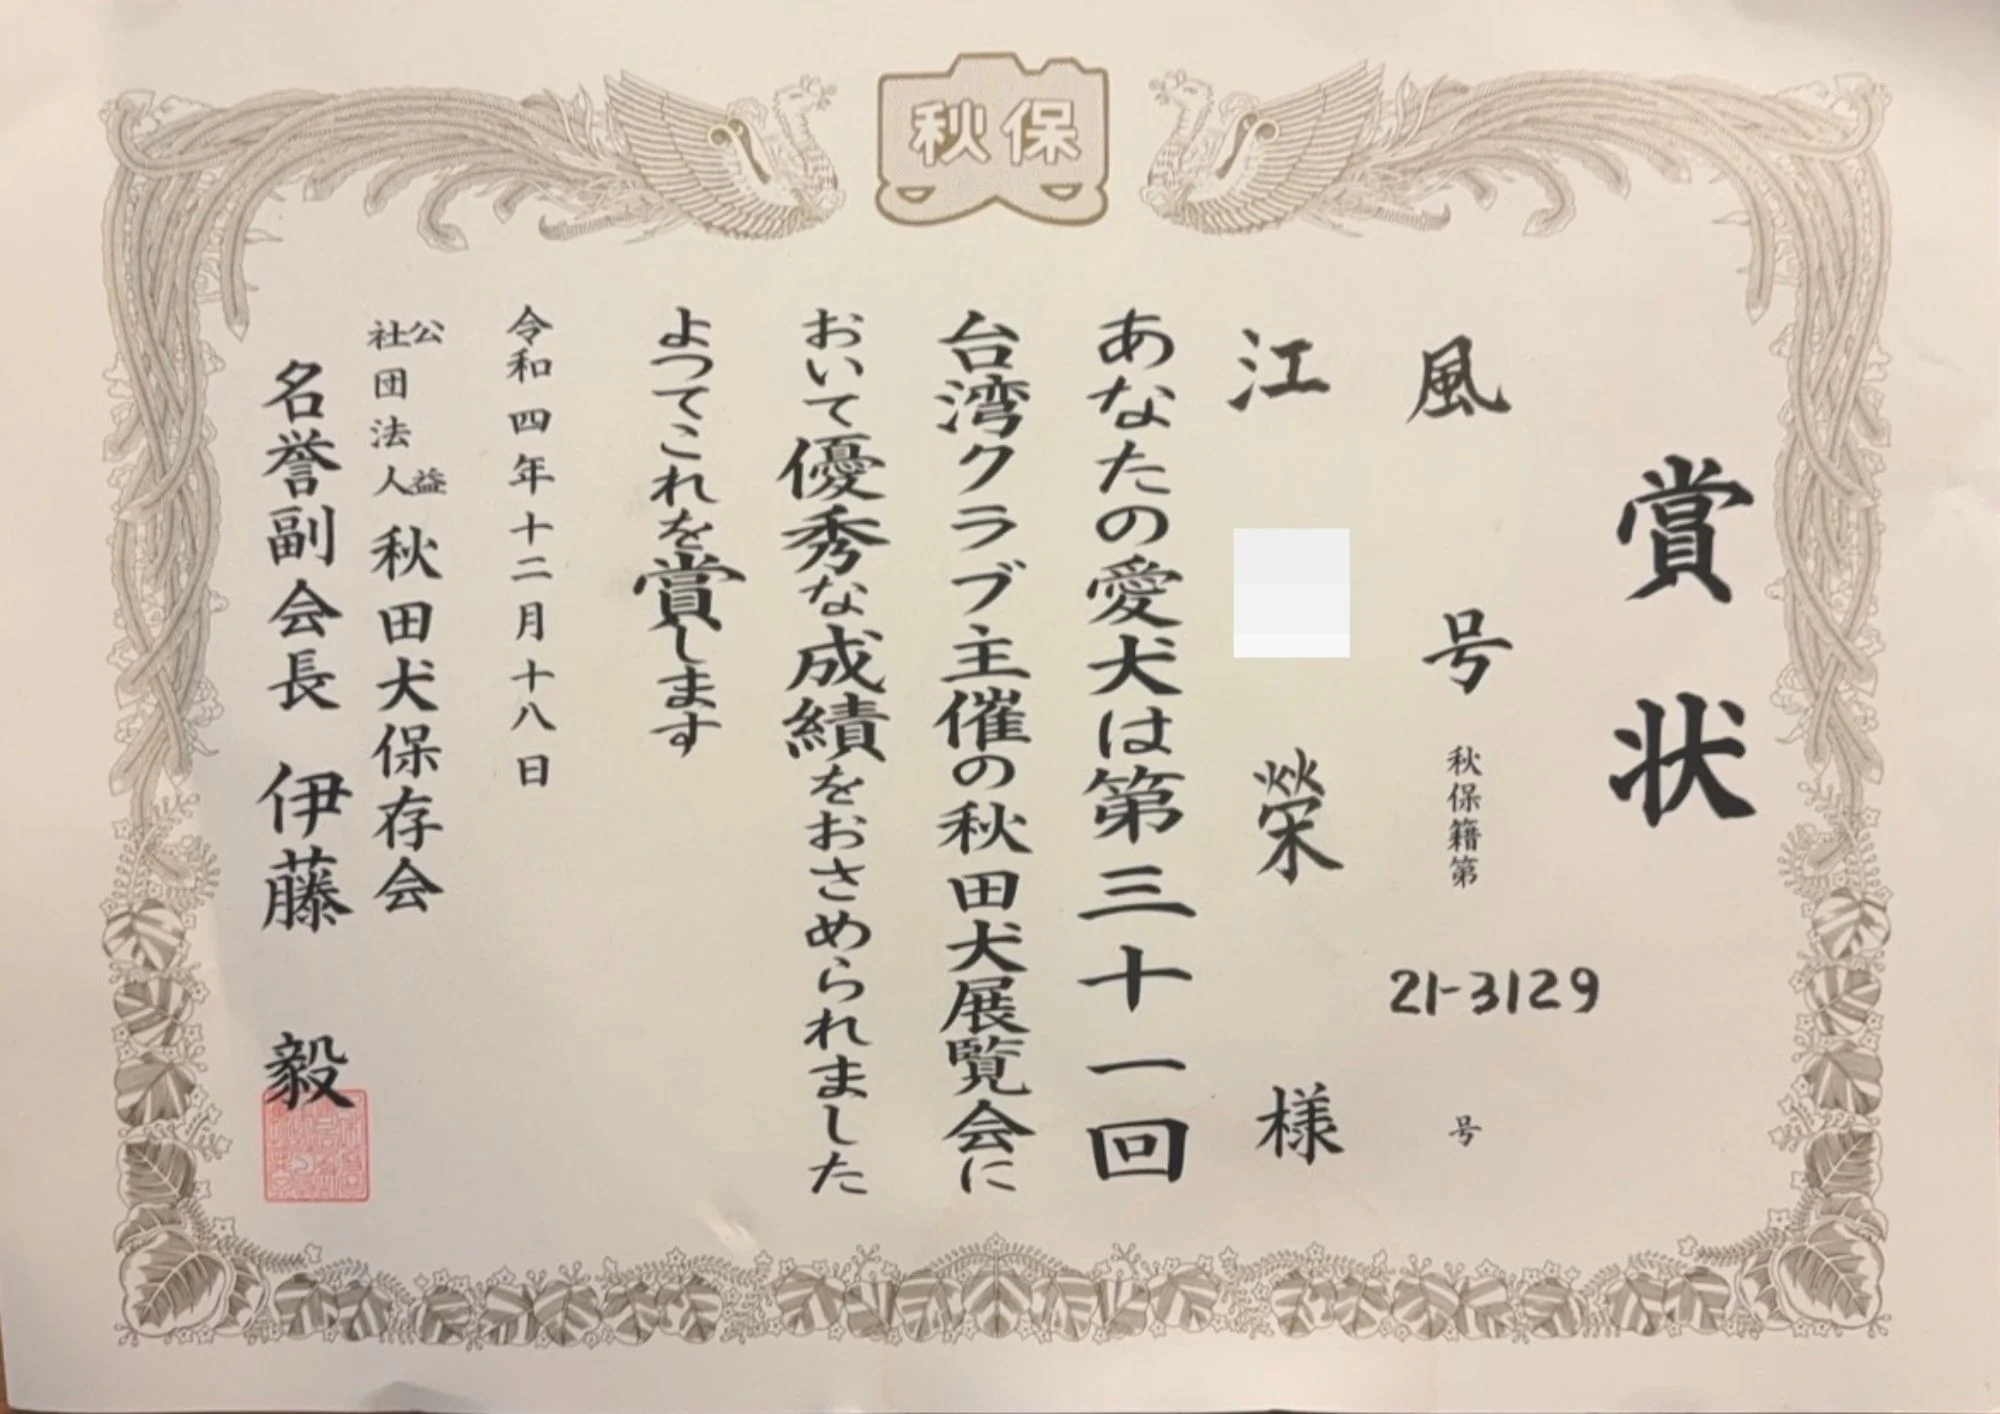 秋保
賞状
風号 秋保籍第 21-3129 号
江 榮 様
あなたの愛犬は第三十一回
台湾クラブ主催の秋田犬展覧会に
おいて優秀な成績をおさめられました
よつてこれを賞します
令和四年十二月十八日
公益社団法人 秋田犬保存会
名誉副会長 伊藤 毅